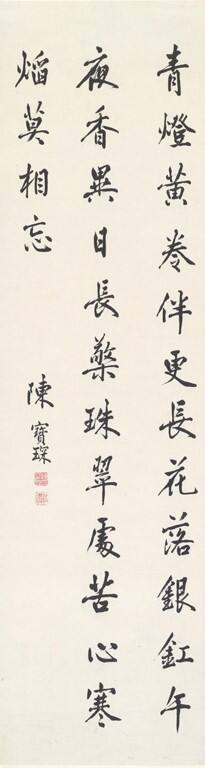 青燈黃卷伴更長花落銀釭午
夜香異日長檠珠翠處苦心寒
焰莫相忘
陳寶琛